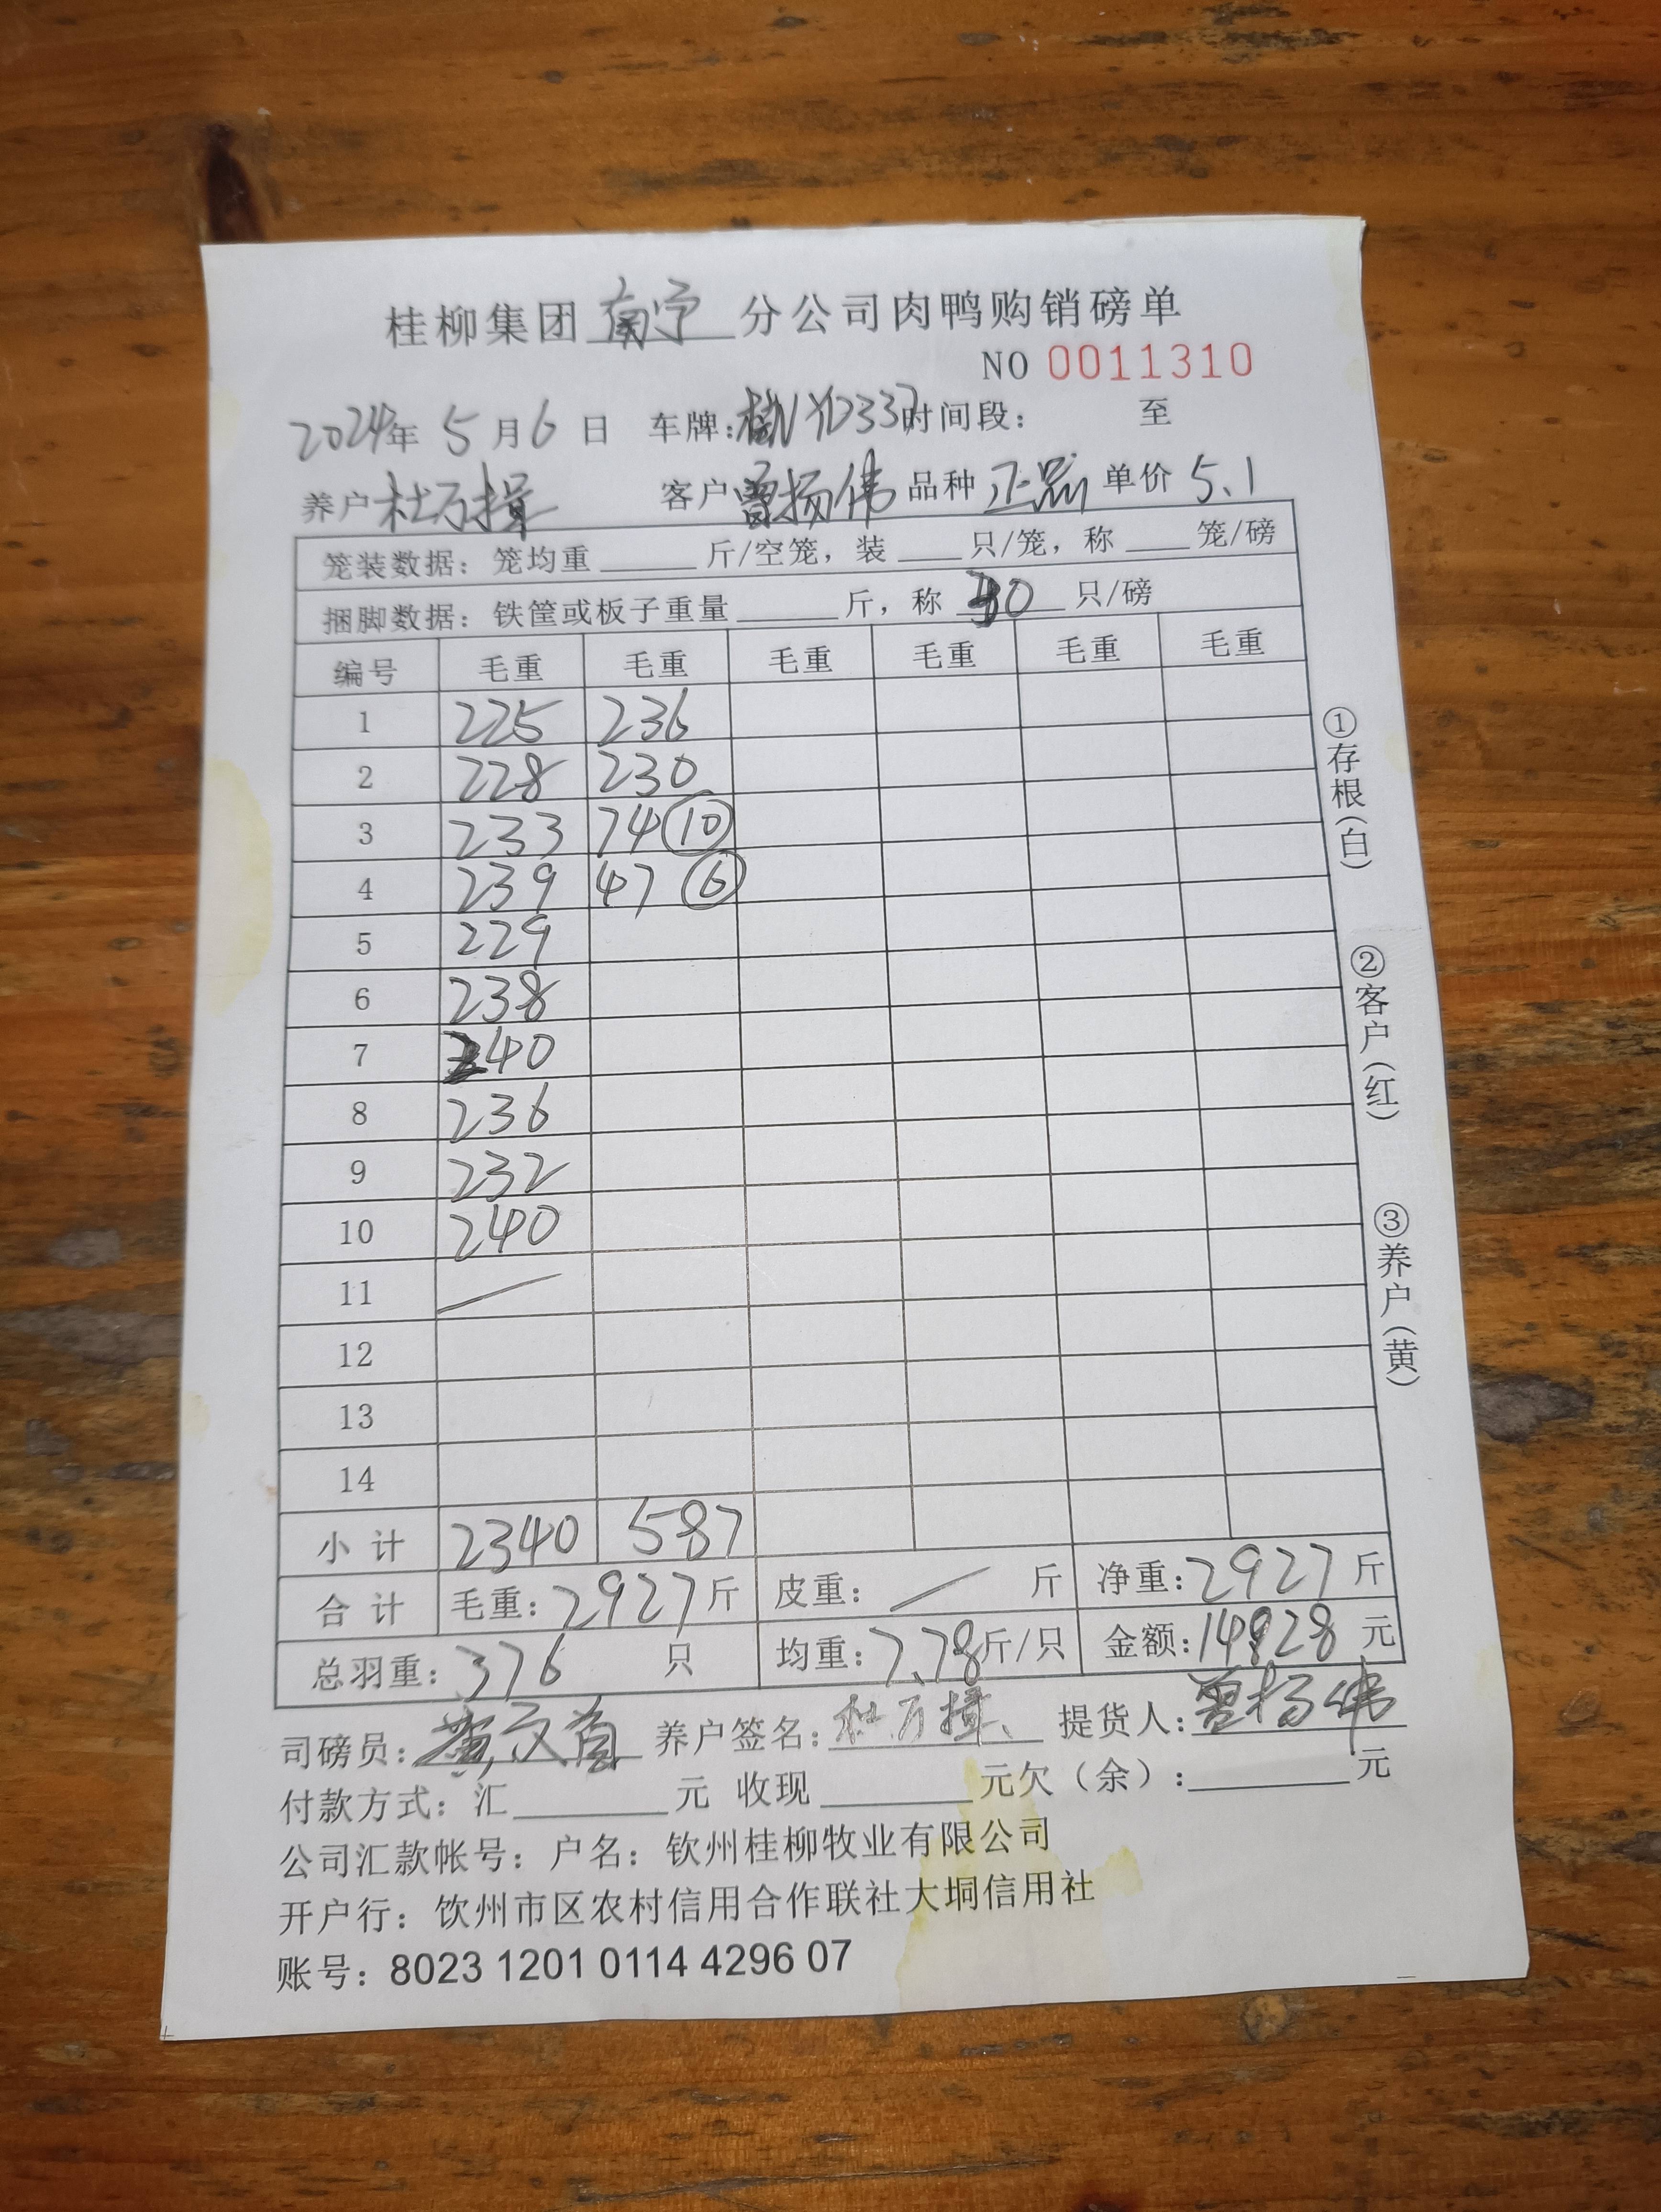 桂柳集团 南宁 分公司肉鸭购销磅单
NO 0011310
2024年 5月6日 车牌: 时间段: 至
养户 杜万揖 客户 曾扬伟 品种 正品 单价 5.1
笼装数据: 笼均重 斤/空笼, 装 只/笼, 称 笼/磅
捆脚数据: 铁筐或板子重量 斤, 称 30 只/磅
编号 毛重 毛重 毛重 毛重 毛重 毛重
1 225 236
2 228 230
3 233 74 ⑩
4 239 47 ⑥
5 229
6 238
7 240
8 236
9 232
10 240
11 /
12
13
14
小计 2340 587
合计 毛重: 2927斤 皮重: / 斤 净重: 2927斤
总羽重: 376 只 均重: 7.78斤/只 金额: 14928 元
司磅员: 黄 养户签名: 杜万揖 提货人: 曾扬伟
付款方式: 汇 元 收现 元欠(余): 元
公司汇款帐号: 户名: 钦州桂柳牧业有限公司
开户行: 饮州市区农村信用合作联社大垌信用社
账号: 8023 1201 0114 4296 07
①存根(白)
②客户(红)
③养户(黄)